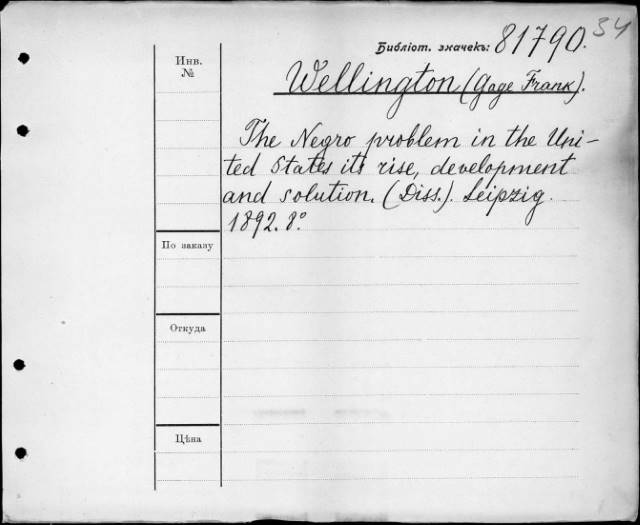 34
Библіот. значекъ: 81790.
Инв.
№
Wellington (Gage Frank).
The Negro problem in the Uni-
ted States its rise, development
and solution. (Diss.). Leipzig.
1892. 8º
По заказу
Откуда
Цѣна